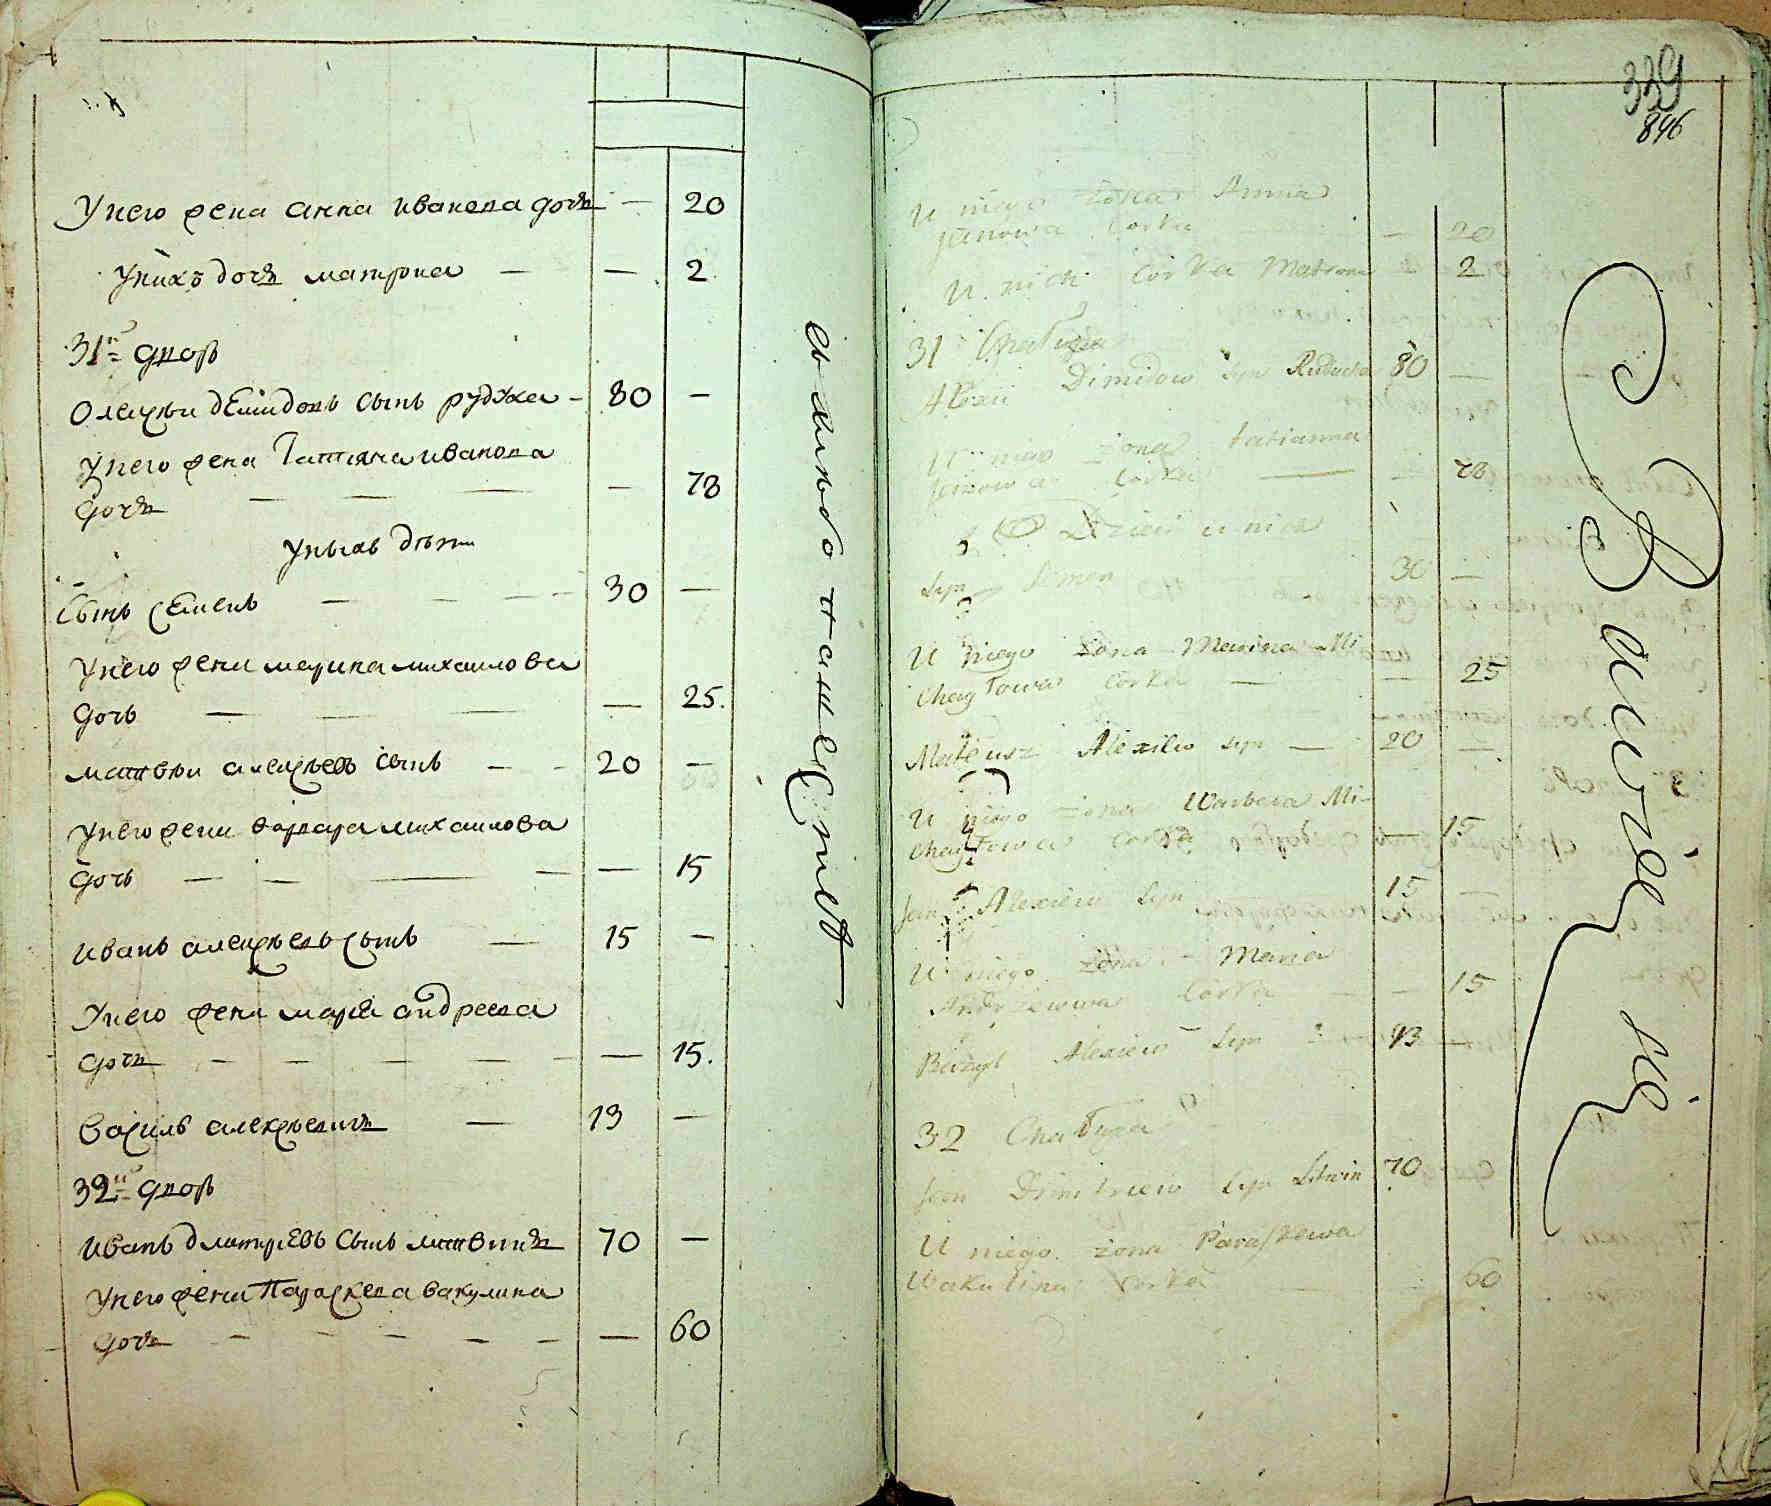 У него жена анна иванова дочь — 20
У нихъ дочь матрона — — 2
31й дворъ
Олексѣи демидовъ сынъ рудӡка — 80 —
У него жена Татияна иванова
дочь — — — — 78
У нихъ дѣти
Сынъ семенъ — — — — 30 —
У него жена марина михаилова
дочь — — — — 25.
матвѣи алексѣевъ сынъ — — 20 —
У него жена варвара михаилова
дочь — — — — — 15
иванъ алексѣевъ сынъ — 15 —
У него жена марѣя андреева
дочь — — — — — — 15.
василь алексѣевичъ — 13 —
32й дворъ
иванъ дмитриевъ сынъ 70 —
У него жена Параскева вакулина
дочь — — — — — — 60
329
846
U niego żona Anna
Janowa Corka — 20
U nich Corka Matrona — 2
31 Chałupa
Alexii Dimidow syn Rudzka 80 —
U niego żona Tatianna
Janowa Corka — — 78
Dzieci u nich
syn Semen 30 —
U niego żona Marina Mi-
chayłowa Corka — — 25
Mateusz Alexiew syn — 20 —
U niego żona Warbara Mi-
chayłowa Corka — 15
Jan Alexiew syn 15 —
U niego żona Maria
Andrzeiowa Corka — 15
Bazyl Alexiew syn — 13 —
32 Chałupa
Jan Dimitriew syn Litwin 70
U niego żona Paraskewa
Wakulina Corka — 60
się